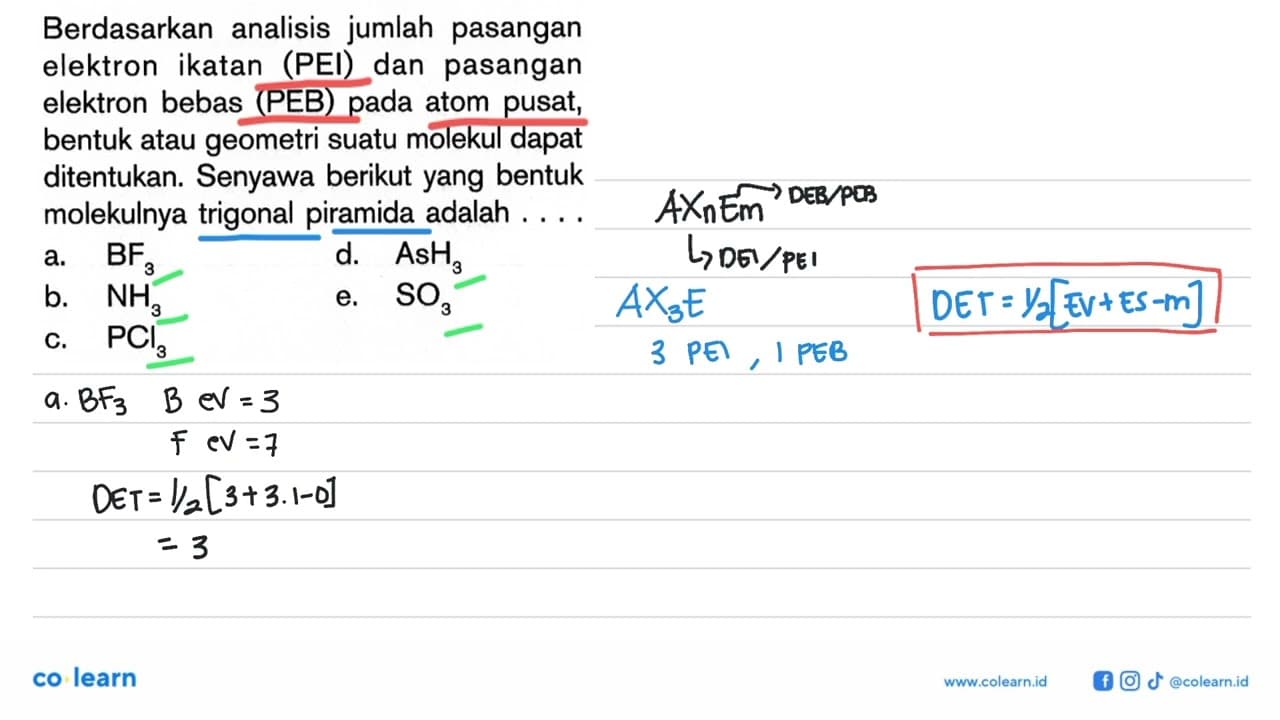 Berdasarkan analisis jumlah pasangan
elektron ikatan (PEI) dan pasangan
elektron bebas (PEB) pada atom pusat,
bentuk atau geometri suatu molekul dapat
ditentukan. Senyawa berikut yang bentuk
molekulnya trigonal piramida adalah . . . .
a. BF₃ d. AsH₃
b. NH₃ e. SO₃
c. PCl₃
AXnEm → DEB/PEB
↳ DEI/PEI
AX₃E
3 PEI, 1 PEB
DET = 1/2[EV + ES - m]
a. BF₃ B eV = 3
F eV = 7
DET = 1/2[3 + 3.1 - 0]
= 3
co learn
www.colearn.id
@colearn.id